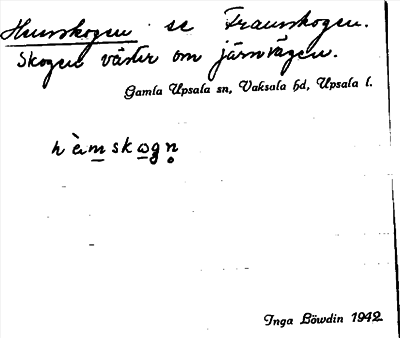 Hemskogen se Framskogen.
Skogen väster om järnvägen.
Gamla Upsala sn, Vaksala hd, Upsala l.
hèmskogn̥
Inga Löwdin 1942